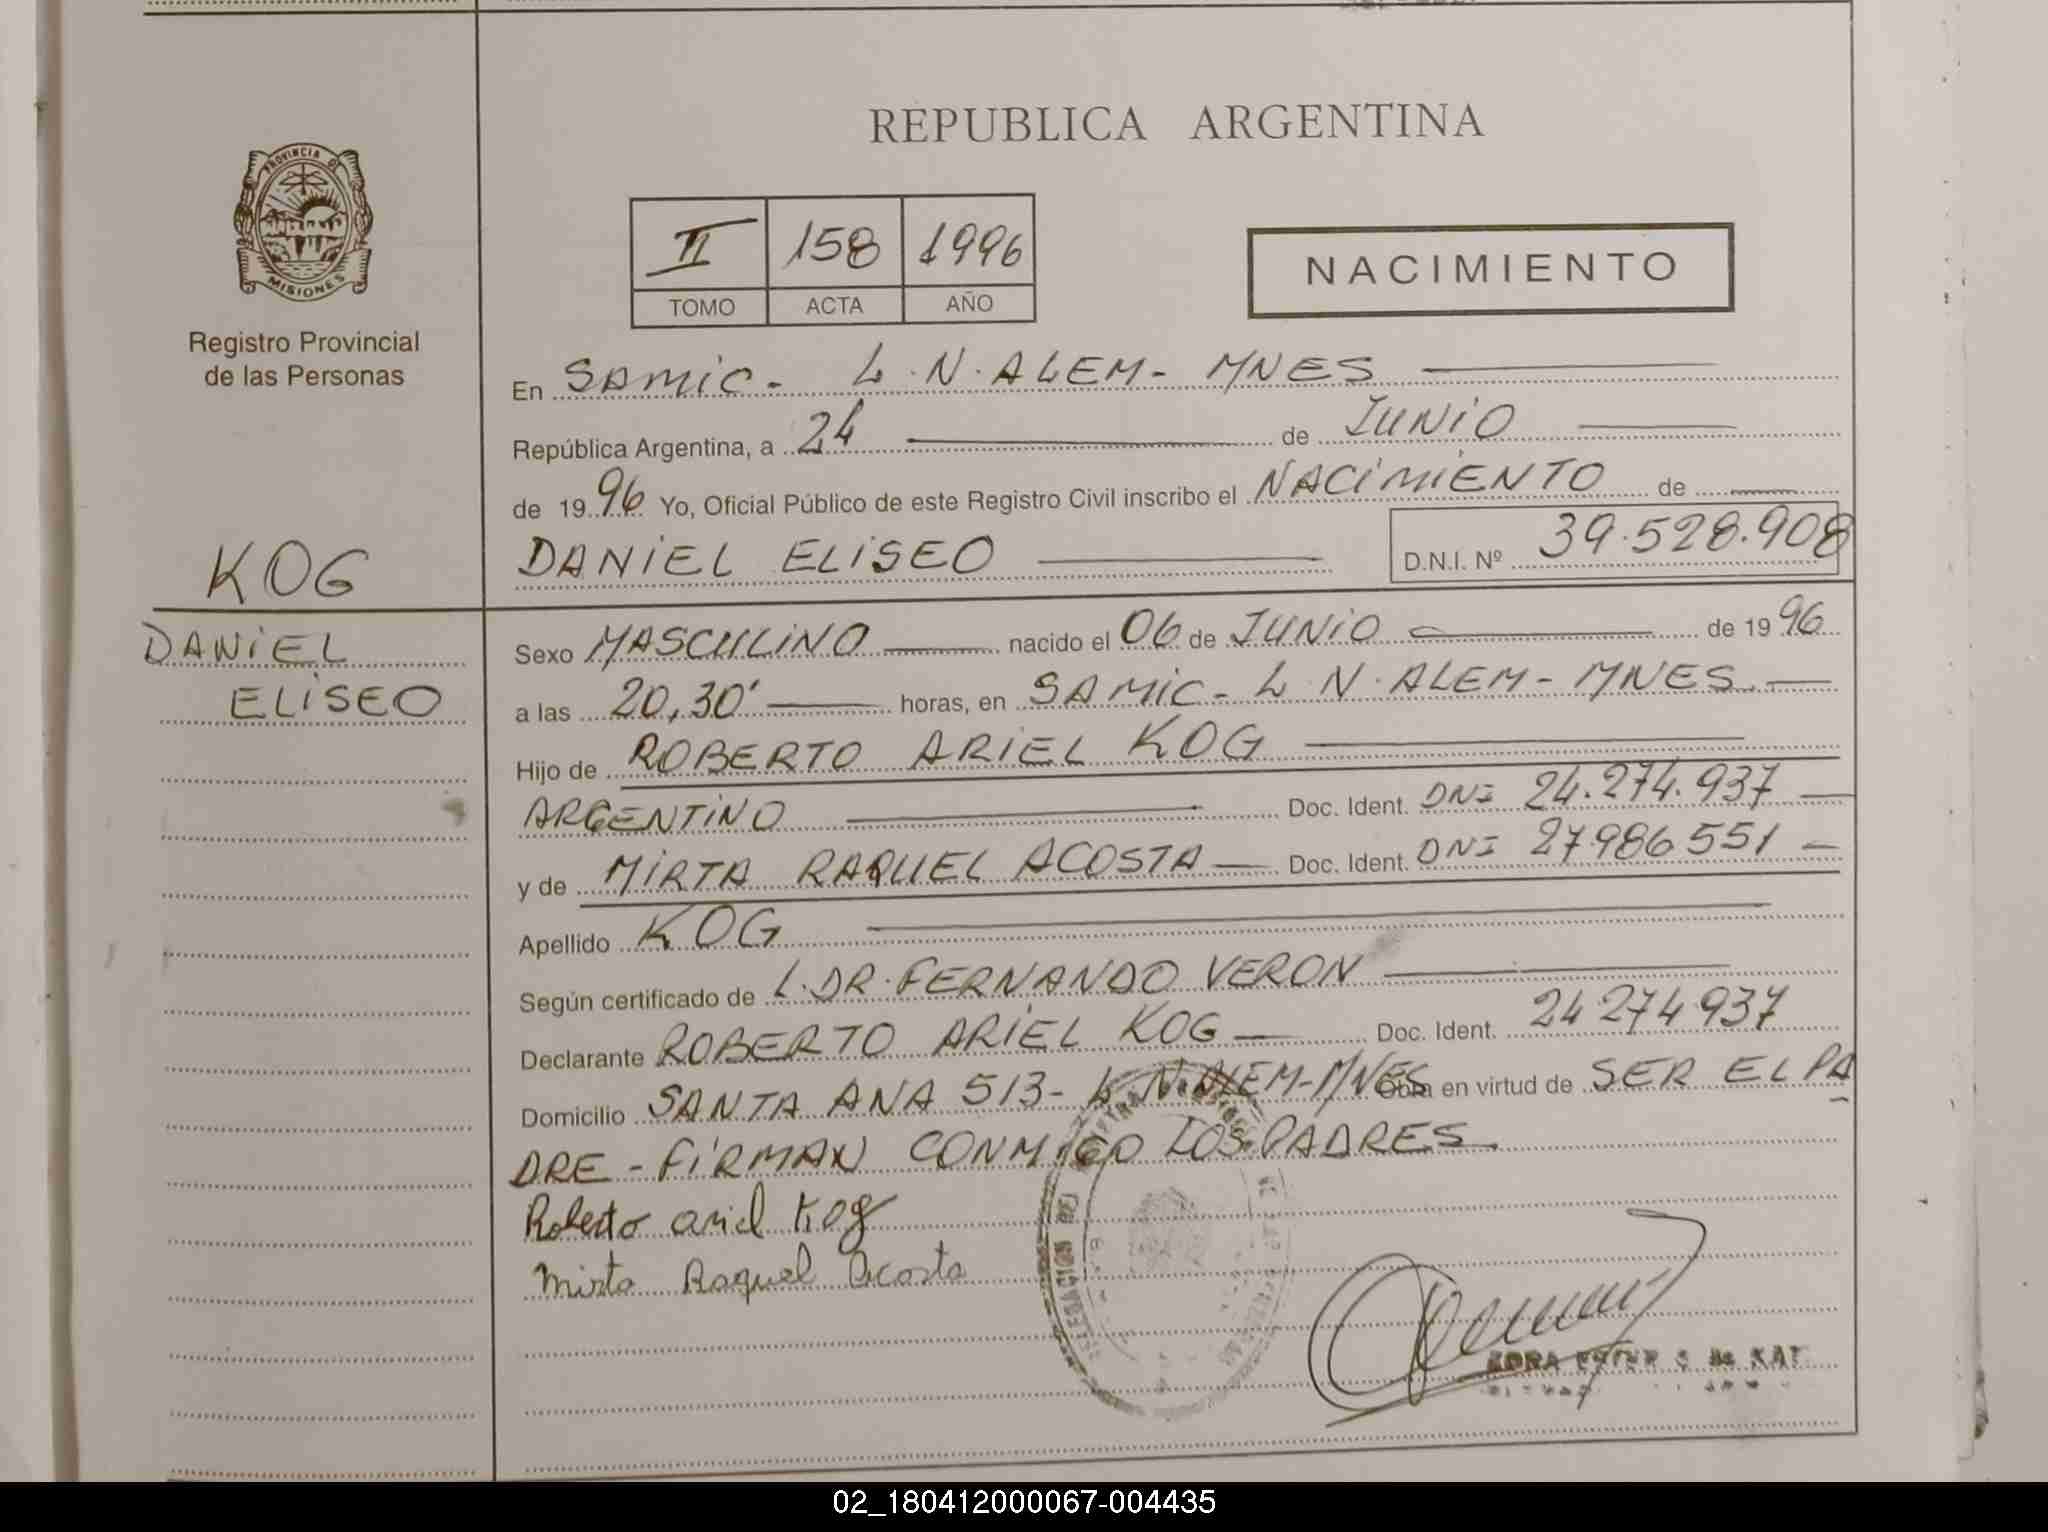 REPUBLICA ARGENTINA
PROVINCIA DE
MISIONES
Registro Provincial
de las Personas
II 158 1996
TOMO ACTA AÑO
NACIMIENTO
En SAMIC- L.N.ALEM- MNES
República Argentina, a 24 de JUNIO
de 1996 Yo, Oficial Público de este Registro Civil inscribo el NACIMIENTO de
DANIEL ELISEO D.N.I. Nº 39.528.908
KOG
DANIEL
ELISEO
Sexo MASCULINO nacido el 06 de JUNIO de 1996
a las 20,30' horas, en SAMIC- L.N.ALEM- MNES
Hijo de ROBERTO ARIEL KOG
ARGENTINO Doc. Ident. DNI 24.274.937
y de MIRTA RAQUEL ACOSTA Doc. Ident. DNI 27986551
Apellido KOG
Según certificado de L.DR.FERNANDO VERON
Declarante ROBERTO ARIEL KOG Doc. Ident. 24274937
Domicilio SANTA ANA 513- L.N.ALEM-MNES Obra en virtud de SER EL PA
DRE - FIRMAN CONMIGO LOS PADRES.
Roberto ariel Kog
Mirta Raquel Acosta
02_180412000067-004435